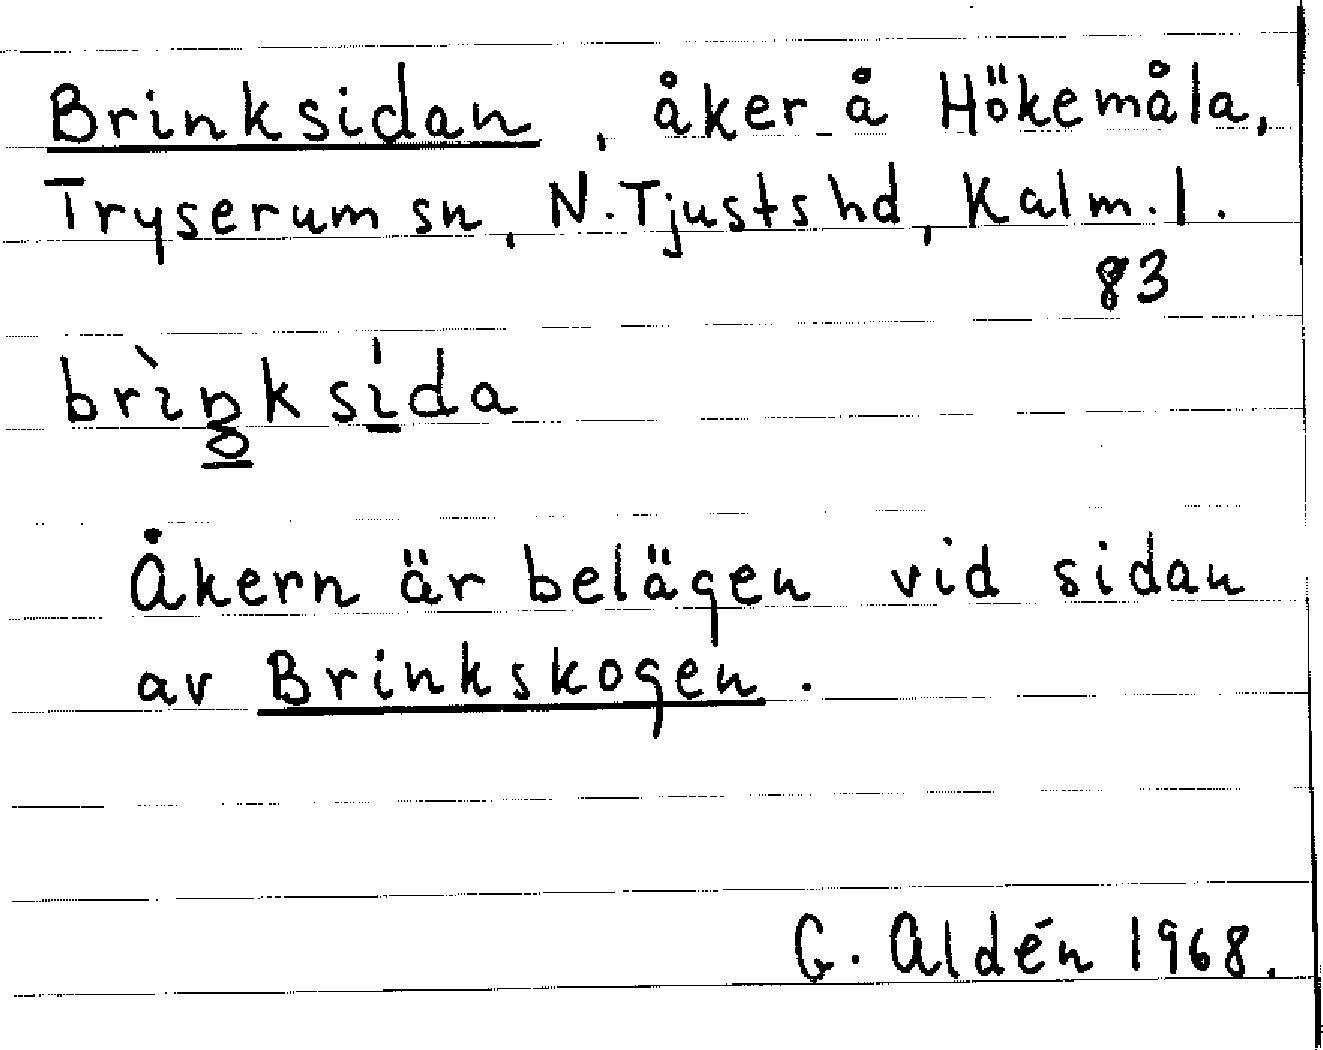 Brinksidan, åker å Hökemåla,
Tryserum sn, N. Tjusts hd, Kalm. l.
83
brìŋksída
Åkern är belägen vid sidan
av Brinkskogen.
G. Aldén 1968.